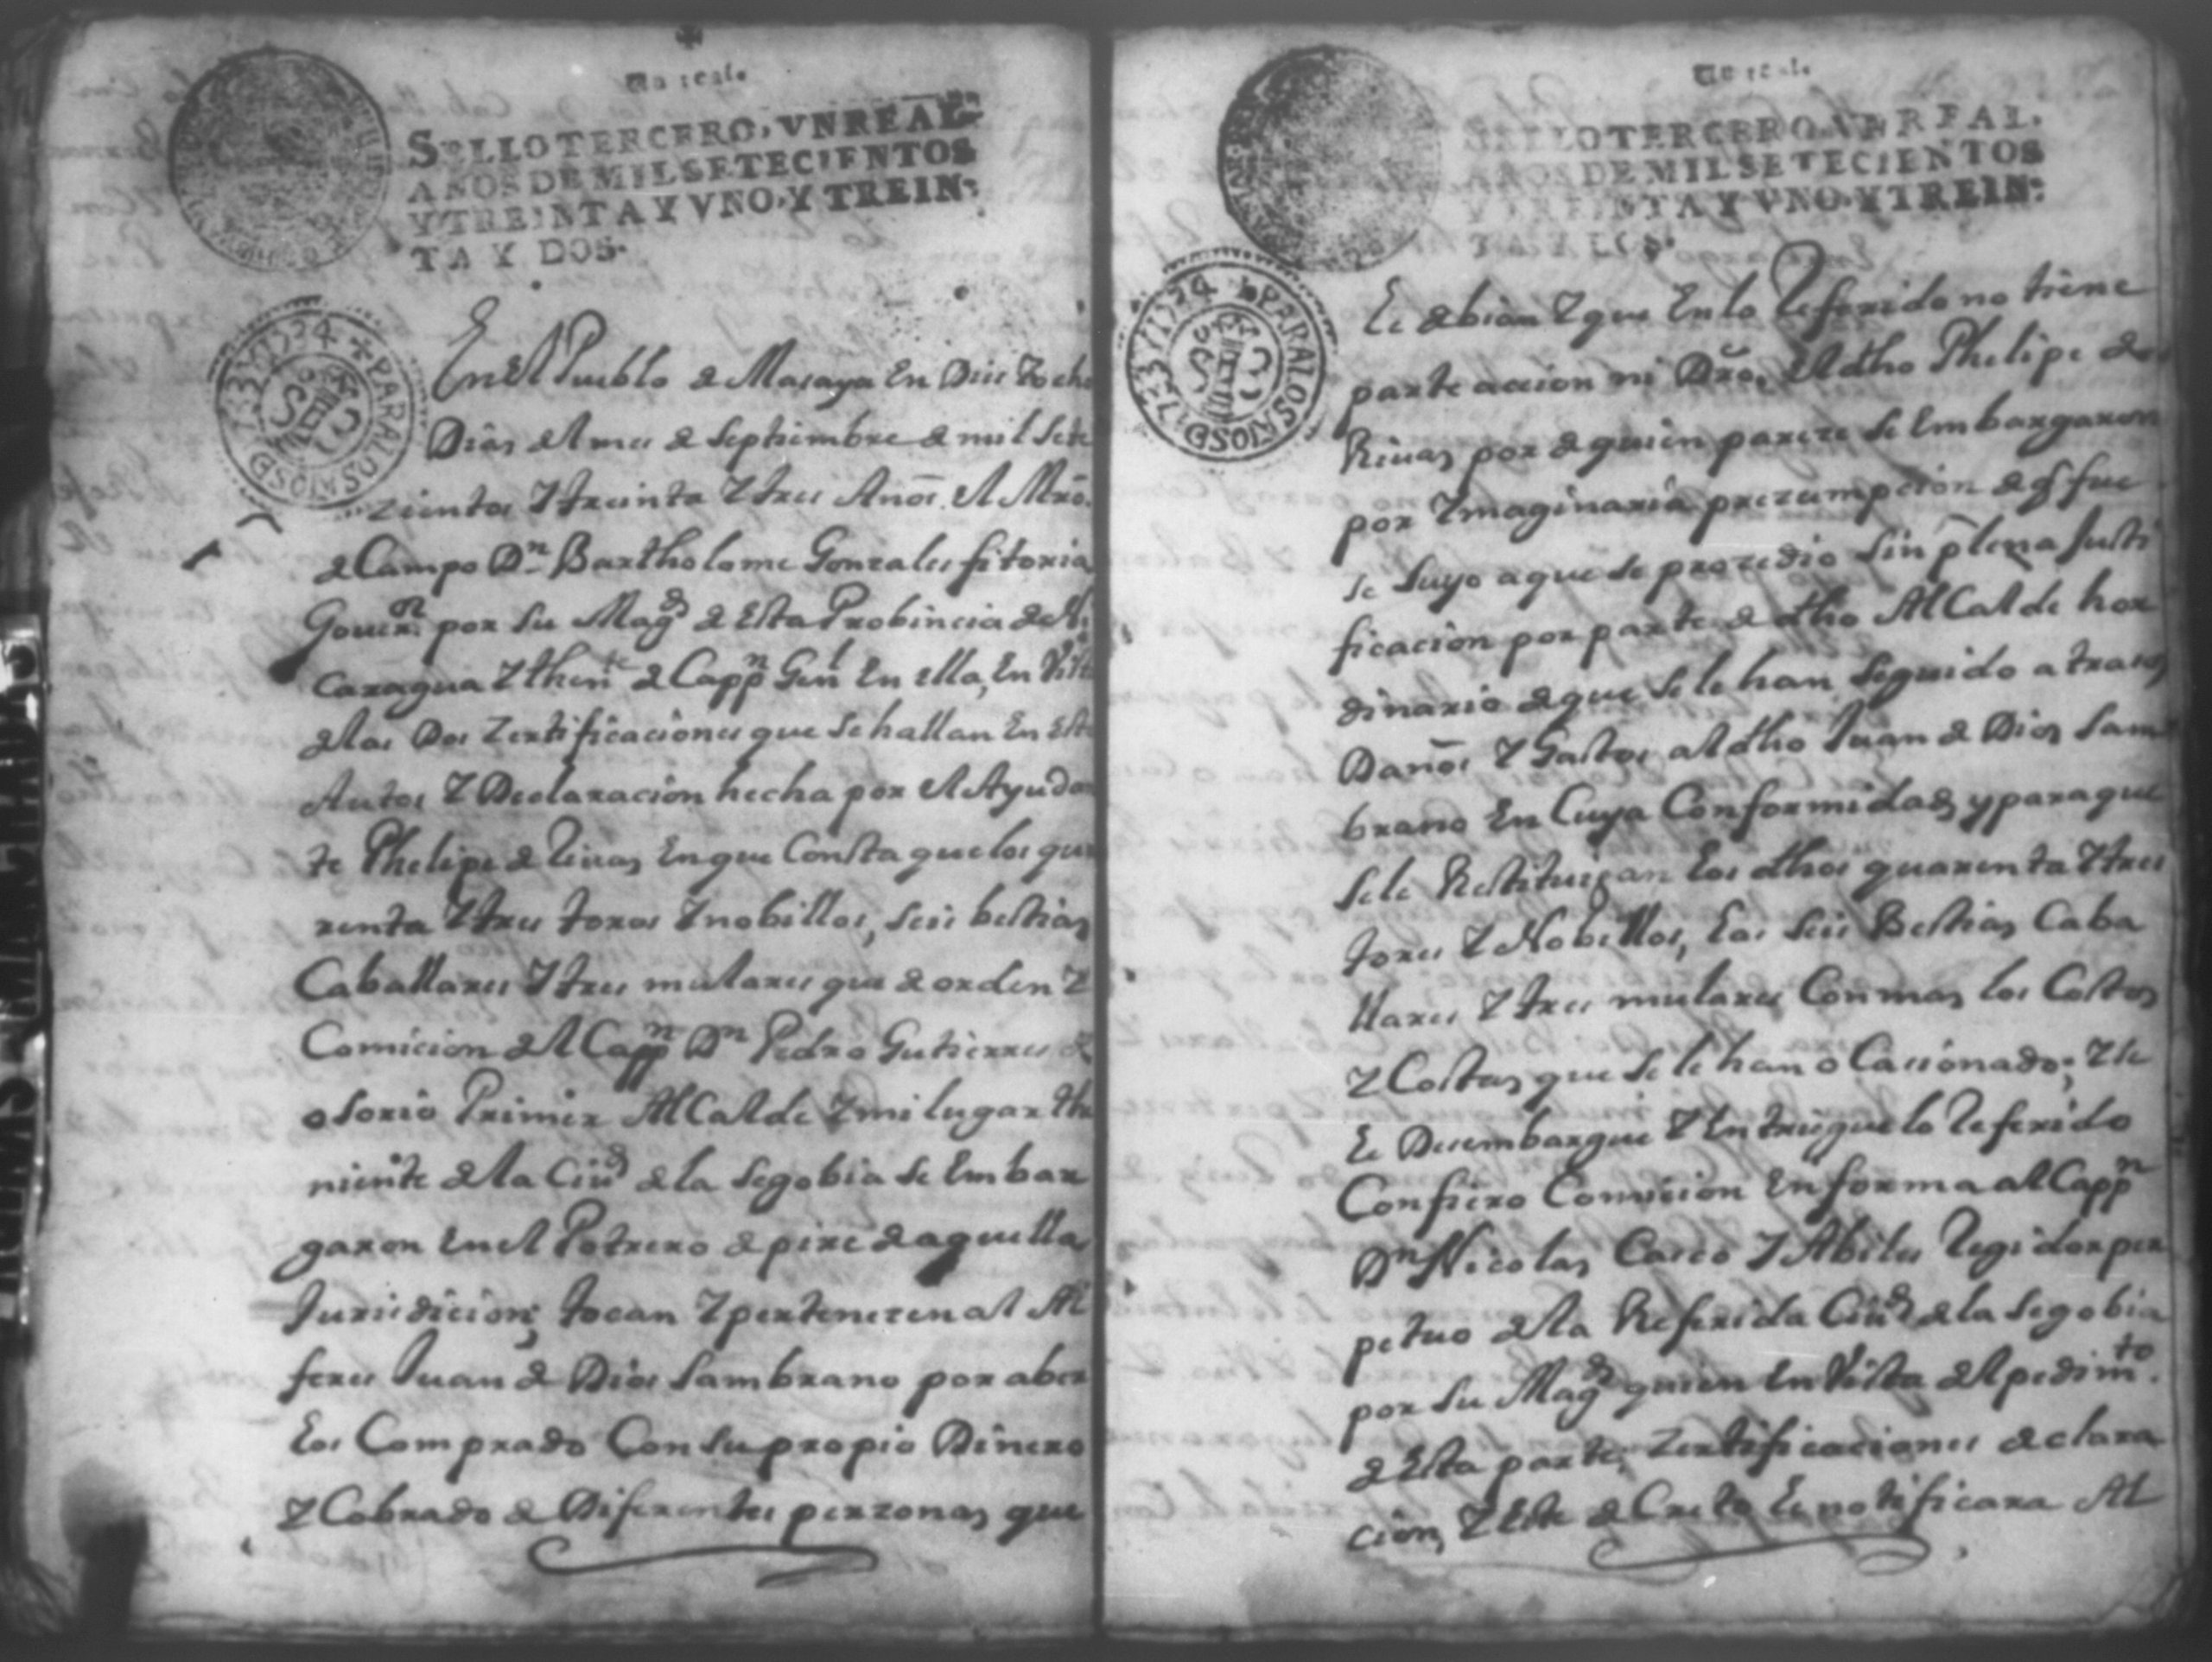 Un real.
SELLO TERCERO, VN REAL
AÑOS DE MIL SETECIENTOS
Y TREINTA Y VNO, Y TREIN-
TA Y DOS.
PARA LOS AÑOS DE 1733 Y 1734
En el Pueblo de Masaya en Dies y ocho
Dias del mes de Septiembre de mil sete
zientos y treinta y tres Años. el Mrõ.
de Campo Dn Bartholome Gonzales fitoria
Gouerr. por su Magd de esta Probincia de Ni
caragua y thente de Cappn Genl en ella, en Vista
de las Dos zertificaciones que se hallan en estos
Autos y Declaracion hecha por el Ayudan
te Phelipe de Riuas en que Consta que los qua
renta y tres toros y nobillos, seis bestias
Caballares y tres mulares que de orden y
Comicion del Cappn Dn Pedro Gutierres de
osorio Primer Alcalde y mi lugar the
niente de la Ciud de la Segobia se Embar
garon en el Potrero de pire de aquella
Jurisdicion; tocan y pertenezen al Al
feres Juan de Dios Sambrano por aber
los Comprado Con su propio Dinero
y Cobrado de Diferentes perzonas que
Un real.
SELLO TERCERO, VN REAL.
AÑOS DE MIL SETECIENTOS
Y TREINTA Y VNO, Y TREIN-
TA Y DOS.
PARA LOS AÑOS DE 1733 Y 1734
le debian y que en lo Referido no tiene
parte accion ni Dro. el dho Phelipe de
Riuas por de quien pareze se Embargaron
por ymaginaria prezumpcion de q fue
se suyo a que se prozedio sin plena Justi
ficacion por parte de dho Alcalde hor
dinario de que se le han seguido atrasos
Daños y Gastos al dho Juan de Dios Sam
brano en Cuya Conformidad, y para que
se le Restituigan los dhos quarenta y tres
tores y Nobillos, las seis Bestias Caba
llares y tres mulares Con mas los Costos
y Costas que se le han o Cacionado; y se
le Desembargue y Entregue lo Referido
Confiero Comicion en forma al Cappn
Dn Nicolas Casco y Abiles Regidor per
petuo de la Referida Ciud de la Segobia
por su Magd quien en Vista del pedimto.
de esta parte, zertificaciones declara
cion, y este decreto le notificara Al